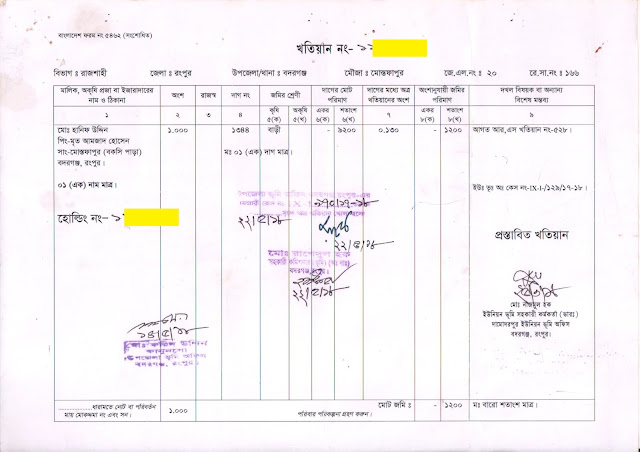 বাংলাদেশ ফরম নং ৫৪৬২ (সংশোধিত)
খতিয়ান নং-
বিভাগ ঃ রাজশাহী জেলা ঃ রংপুর উপজেলা/থানা ঃ বদরগঞ্জ মৌজা ঃ মোস্তফাপুর জে.এল.নং ঃ ২০ রে.সা.নং ঃ ১৬৬
মালিক, অকৃষি প্রজা বা ইজারাদারের নাম ও ঠিকানা
অংশ
রাজস্ব
দাগ নং
জমির শ্রেণী
দাগের মোট পরিমাণ
দাগের মধ্যে অত্র খতিয়ানের অংশ
অংশানুযায়ী জমির পরিমাণ
দখল বিষয়ক বা অন্যান্য বিশেষ মন্তব্য
কৃষি ৫(ক) অকৃষি ৫(খ) একর ৬(ক) শতাংশ ৬(খ) একর ৮(ক) শতাংশ ৮(খ)
১ ২ ৩ ৪ ৭ ৯
মোঃ হানিফ উদ্দিন ১.০০০ ১৩৪৪ বাড়ী - ৯২০০ ০.১৩০ - ১২০০ আগত আর,এস খতিয়ান নং-৫২৮।
পিং-মৃত আমজাদ হোসেন
সাং-মোস্তফাপুর (বকসি পাড়া) মঃ ০১ (এক) দাগ মাত্র।
বদরগঞ্জ, রংপুর।
০১ (এক) নাম মাত্র।
ইউঃ ভূঃ অঃ কেস নং-IX-I-/১২৯/১৭-১৮।
হোল্ডিং নং-
প্রস্তাবিত খতিয়ান
২২/৫/১৮
বদরগঞ্জ, রংপুর।
মোঃ নাজমুল হক
ইউনিয়ন ভূমি সহকারী কর্মকর্তা (ভারঃ)
দামোদরপুর ইউনিয়ন ভূমি অফিস
বদরগঞ্জ, রংপুর।
কানুনগো
উপজেলা ভূমি অফিস
বদরগঞ্জ, রংপুর।
..........ধারামতে নোট বা পরিবর্তন মায় মোকদ্দমা নং এবং সন।
১.০০০
মোট জমি ঃ - ১২০০ মঃ বারো শতাংশ মাত্র।
পরিবার পরিকল্পনা গ্রহণ করুন।